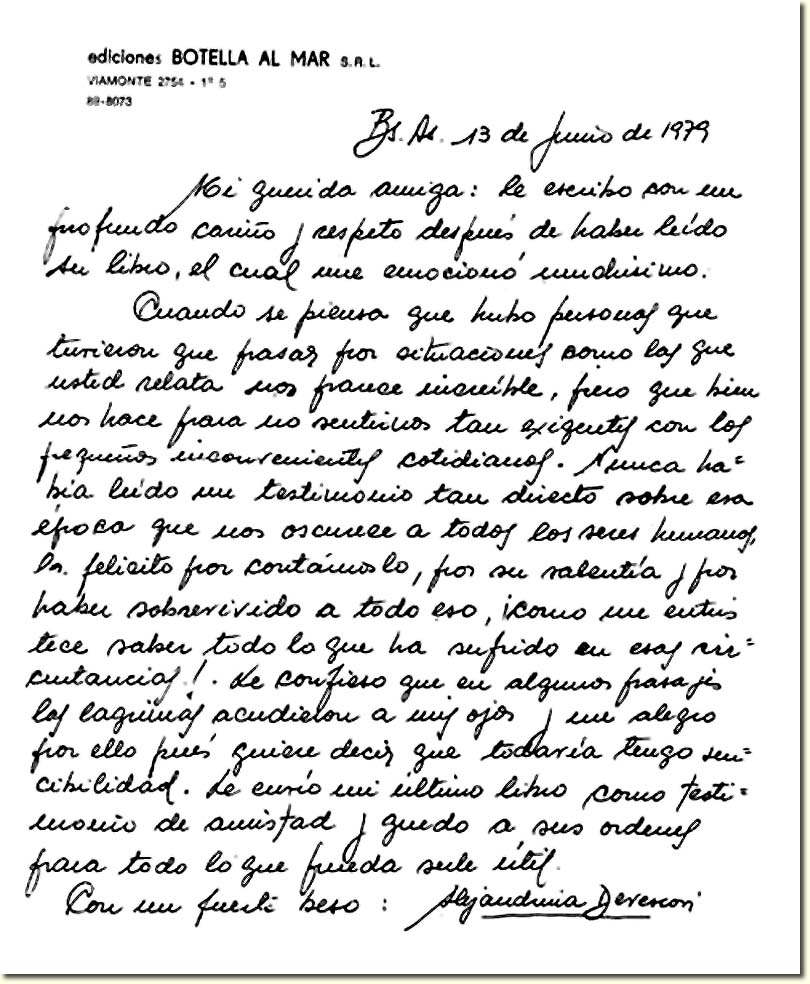 ediciones BOTELLA AL MAR S.R.L.
VIAMONTE 2754 - 1º 5
89-8073
Bs. As. 13 de Junio de 1979
Mi querida amiga: le escribo con un
profundo cariño y respeto después de haber leído
su libro, el cual me emocionó muchísimo.
Cuando se piensa que hubo personas que
tuvieron que pasar por situaciones como las que
usted relata nos parece increíble, pero que bien
nos hace para no sentirnos tan exigentes con los
pequeños inconvenientes cotidianos. Nunca ha=
bía leído un testimonio tan directo sobre esa
época que nos oscurece a todos los seres humanos,
la felicito por contárnoslo, por su valentía y por
haber sobrevivido a todo eso, ¡como me entris
tece saber todo lo que ha sufrido en esas cir=
cuntancias!. Le confieso que en algunos pasajes
las lagrimas acudieron a mis ojos y me alegro
por ello pués quiere decir que todavía tengo sen=
cibilidad. Le envío mi último libro como testi=
monio de amistad y quedo a sus ordenes
para todo lo que pueda serle útil.
Con un fuerte beso: Alejandrina Devescovi